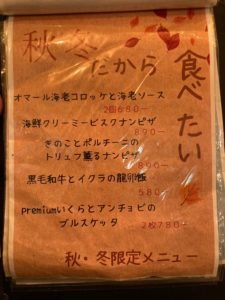 秋・冬
だから
食べたい
オマール海老コロッケと海老ソース
2個680-
海鮮クリーミービスクナンピザ
890-
きのことポルチーニの
トリュフ薫るナンピザ
890-
黒毛和牛とイクラの龍別飯
580-
premiumいくらとアンチョビの
ブルスケッタ
2枚780-
秋・冬限定メニュー